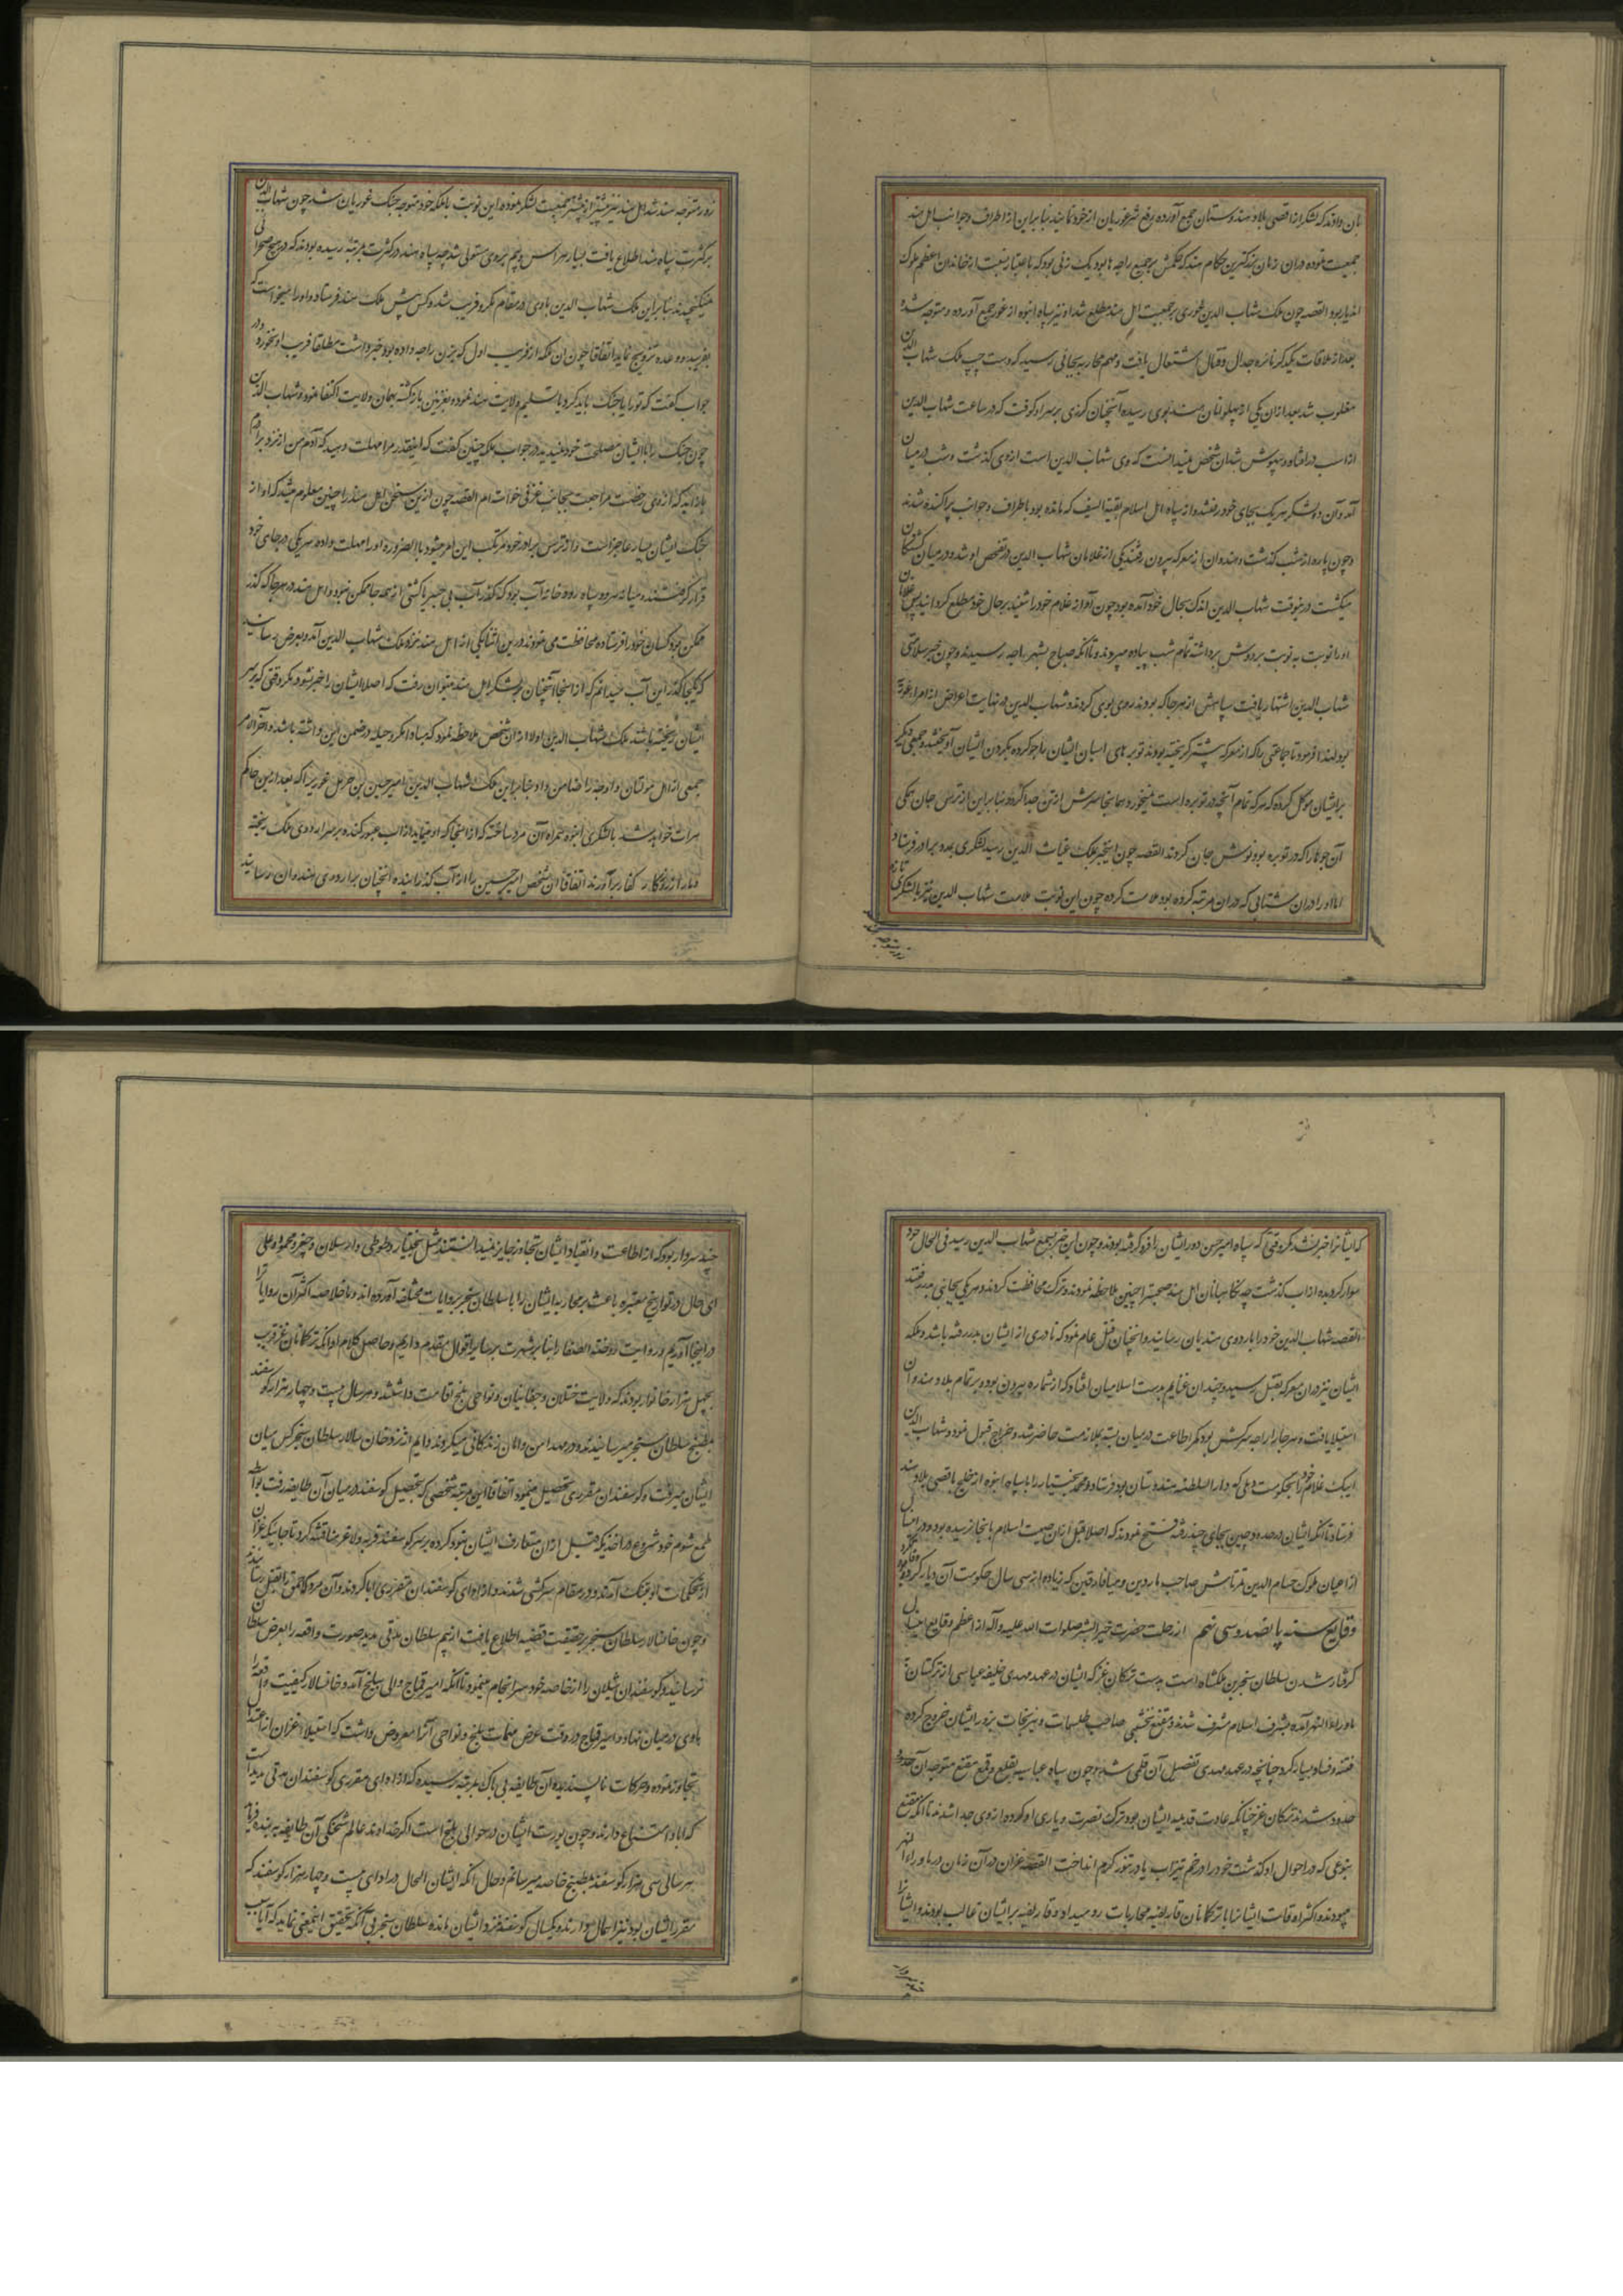 بان دادند که لشکر از اقصی بلاد هندوستان جمع آورده برفع شر غوریان از خود نمایند بنابراین از اطراف و جوانب اهل هند
جمعیت نموده در آن زمان بزرگترین حکام هند که حکمش بر جمیع راجه ها بود یک زنی بود که باعتبار نسبت از خاندان اعظم ملوک
اندیار بود القصه چون ملک شهاب الدین غوری بر جمعیت اهل هند مطلع شد او نیز سپاه انبوه از غور جمع آورده و متوجه شد و
بعد از ملاقات یکدیگر نائره جدال و قتال اشتعال یافت و مهم محاربه بجائی رسید که دست چپ ملک شهاب الدین
مغلوب شد بعد از آن یکی از پهلوانان هند بوی رسیده آنچنان گرزی بر سر او کوفت که در ساعت شهاب الدین
از اسب در افتاد و بیهوش شد آن شخص نمیدانست که وی شهاب الدین است از وی گذشت و شب در میان
آمد و آن دو لشکر هر یک بجای خود رفتند و از سپاه اهل اسلام بقیة السیف که مانده بود باطراف و جوانب پراکنده شدند
و چون پاره از شب گذشت و هندوان از معرکه بیرون رفتند یکی از غلامان شهاب الدین در تفحص او شد و در میان کشتگان
میگشت درینوقت شهاب الدین اندک بحال خود آمده بود چون آواز غلام خود را شنید بر حال خود مطلع گردانید پس غلامان
او را نوبت به نوبت بر دوش برداشته تمام شب پیاده میبردند تا آنکه صباح بشهر راجه رسیدند و چون خبر سلامتی
شهاب الدین اشتهار یافت سپاهش از هر جا که بودند روی بوی کردند و شهاب الدین در نهایت اعراض از امراء غور
بود لهذا فرمود تا جماعتی را که از معرکه پیشتر گریخته بودند توبره های اسبان ایشان را جو کرده بگردن ایشان آویختند و جمعی دیگر
بر ایشان موکل کرده که هر که تمام آنچه در توبره است نمیخورد همانجا سرش از تن جدا کردند بنابراین از ترس جان همگی
آن جوها را که در توبره بود نوش جان کردند القصه چون اینخبر بملک غیاث الدین رسید لشکری بمدد برادر فرستاد
اما او را در آن شتابی که در آن مرتبه کرده بود ملامت کرده چون این نوبت ملامت شهاب الدین نیز با لشکری تازه
زور متوجه
زور متوجه هند شد اهل هند نیز بیشتر از پیشتر جمعیت لشکر نموده این نوبت با ملکه خود متوجه جنگ غوریان شد چون شهاب الدین
بر کثرت سپاه هند اطلاع یافت بسیار هراس و بیم بر وی مستولی شد چه سپاه هند در کثرت بمرتبه رسیده بودند که در هیچ صحرائی
نمیگنجیدند بنابراین ملک شهاب الدین با وی در مقام مکر و فریب شد و کس پیش ملک هند فرستاد و او را میخواست که
بفریبد و وعده تزویج نماید اتفاقا چون آن ملکه از فریب اول که بزن راجه داده بود خبر داشت مطلقا فریب او نخورد و در
جواب گفت که تو را یا جنگ باید کرد یا تسلیم ولایت هند نموده بغزنین بازگشته بهمان ولایت اکتفا نمود و شهاب الدین
چون جنگ را با ایشان مصلحت خود ندید در جواب ملکه چنین گفت که اینقدر مرا مهلت دهید که آدم من از نزد برادرم
بازآید که از وی رخصت مراجعت بجانب غزنی خواسته ام القصه چون ازین سخن اهل هند را چنین معلوم میشد که او از
جنگ ایشان بسیار عاجز است و از ترس برادر خود مرتکب این امر میشود بالضروره او را مهلت داده هر یکی در جای خود
قرار گرفتند و میانه هر دو سپاه رودخانه آب بود که گذر آب بی جسر یا کشتی از همه جا ممکن نبود و اهل هند در هر جا که گذر
ممکن بود کسان خود را فرستاده محافظت می نمودند درین اثنا یکی از اهل هند نزد ملک شهاب الدین آمد و بعرض رسانید
که یکجا گذر این آب میدانم که از آنجا آنچنان بر لشکر اهل هند میتوان رفت که اصلا ایشان را خبر نشود مگر وقتی که بر سر
ایشان ریخته باشند ملک شهاب الدین اولا از آن شخص ملاحظه نمود که مبادا مکر و حیله در ضمن این داشته باشد و آخر الامر
جمعی از اهل مولتان و اوچه را ضامن داد بنابراین ملک شهاب الدین امیر حسین بن خرمیل غوری را که بعد ازین حاکم
هرات خواهد شد با لشکری انبوه همراه آن مرد ساخته که از آنجا که او نماید از آب عبور کنند و بر سر اردوی ملکه ریخته
دمار از روزگار کفار برآورند اتفاقا آن شخص امیر حسین را از آب گذرانیده آنچنان بر اردوی هندوان رسانید
که ایشانرا خبر نشد مگر وقتی که سپاه امیر حسین دور ایشان را فرو گرفته بودند و چون این خبر بسمع شهاب الدین رسید فی الحال خود
سوار گردیده از آب گذشت چه نگاهبانان اهل هند صحبت را چنین ملاحظه نمودند ترک محافظت کردند و هر یکی بجانبی بدر رفتند
القصه شهاب الدین خود را باردوی هندیان رسانید و آنچنان قتل عام نمود که نادری از ایشان بدر رفته باشد و ملکه
ایشان نیز در آن معرکه بقتل رسید و چندان غنایم بدست اسلامیان افتاد که از شماره بیرون بود و بر تمام بلاد هندوان
استیلا یافت و هر جا راجه سرکش بود کمر اطاعت در میان بسته بملازمت حاضر شد و خراج قبول نمود و شهاب الدین
ایبک غلام خود را بحکومت دهلی که دار السلطنه هندوستان بود فرستاد و محمد بختیار را با سپاه انبوه از خلج باقصی بلاد هند
فرستاد تا آنکه ایشان در حدود چین بجای چند رفته فتح نمودند که اصلا قبل از آن صیت اسلام بآنجا نرسیده بود و درین سال
از اعیان ملوک حسام الدین تمرتاش صاحب ماردین و میافارقین که زیاده از سی سال حکومت آن دیار کرده بود
وقایع سنه پانصد و سی نهم از رحلت حضرت خیر البشر صلوات الله علیه و آله از اعظم وقایع این سال
گرفتار شدن سلطان سنجر بن ملکشاه است بدست ترکان غز که ایشان در عهد مهدی خلیفه عباسی از ترکستان به
ماوراء النهر آمده بشرف اسلام مشرف شدند و مقنع نخشبی صاحب طلسمات و نیرنجات بزور ایشان خروج کرده
فتنه و فساد بسیار کرد چنانچه در عهد مهدی تفصیل آن قلمی شد و چون سپاه عباسیه بقلع و قمع مقنع متوجه آن حدود
شدند ترکان غز چنانکه عادت قدیمه ایشان بود ترک نصرت و یاری او کرده از وی جدا شدند تا آنکه مقنع
بنوعی که در احوال او گذشت خود را در خم تیزاب یا در تنور گرم انداخت القصه غزان در آن زمان در ماوراء النهر
میبودند و اکثر اوقات ایشانرا با ترکمانان قارلقیه محاربات رو میداد و قارلقیه بر ایشان غالب بودند و ایشانرا
چند سردار
چند سردار بود که از اطاعت و انقیاد ایشان تجاوز جایز نمیدانستند مثل بختیار و طوطی و ارسلان و چغر و محمود و علی
ای حال در تواریخ معتبره باعث بر محاربه ایشان را با سلطان سنجر بروایات مختلفه آورده اند و ما خلاصه اکثر آن روایات را
در اینجا آوردیم و روایت روضة الصفا را بنا بر شهرت بر سایر اقوال مقدم داریم و حاصل کلام او آنکه ترکمانان غز قریب
بچهل هزار خانوار بودند که ولایت ختلان و چغانیان و نواحی بلخ اقامت داشتند و هر سال بیست و چهار هزار گوسفند
بمطبخ سلطان سنجر میرسانیدند و در مهد امن و امان زندگانی میکردند و دایم از نزد خان سالار سلطان سنجر کس میان
ایشان میرفت و گوسفندان مقرری تحصیل مینمود اتفاقا این مرتبه شخصی که بتحصیل گوسفند در میان آن طایفه رفت بواسطه
طمع شوم خود شروع در اخذیکه قبل از آن متعارف ایشان نبود کرده بر سر گوسفند فربه و لاغر مناقشه کرد تا جائیکه غزان
از تحکمات او بتنگ آمدند و در مقام سرکشی شدند و از ادای گوسفندان مقرری ابا کردند و آن مردک احمق را بقتل رسانیدند
و چون خانسالار سلطان سنجر بر حقیقت قضیه اطلاع یافت از بیم سلطان مدتی مدید صورت واقعه را بعرض سلطان
نرسانید و گوسفندان شیلان را از خاصه خود سرانجام مینمود تا آنکه امیر قماج والی بلخ آمد و خانسالار کیفیت واقعه را
باوی در میان نهاد و امیر قماج در وقت عرض مهمات بلخ و نواحی آنرا معروض داشت که استیلاء غزان از اعتدال
تجاوز نموده و حرکات ناپسندیده آن طایفه بی باک بمرتبه رسیده که از ادای مقرری گوسفندان مدتی مدید است
که ابا و امتناع دارند و چون یورت ایشان در حوالی بلخ است اگر خداوند عالم شحنگی آن طایفه به بنده فرماید
هر سالی سی هزار گوسفند بمطبخ خاصه میرسانم و حال آنکه ایشان الحال در ادای بیست و چهار هزار گوسفند که
مقرر ایشان بود نیز اهمال دارند و یکسال گوسفند نزد ایشان مانده سلطان سنجر بی آنکه تحقیق اینمعنی نماید که آیا سبب